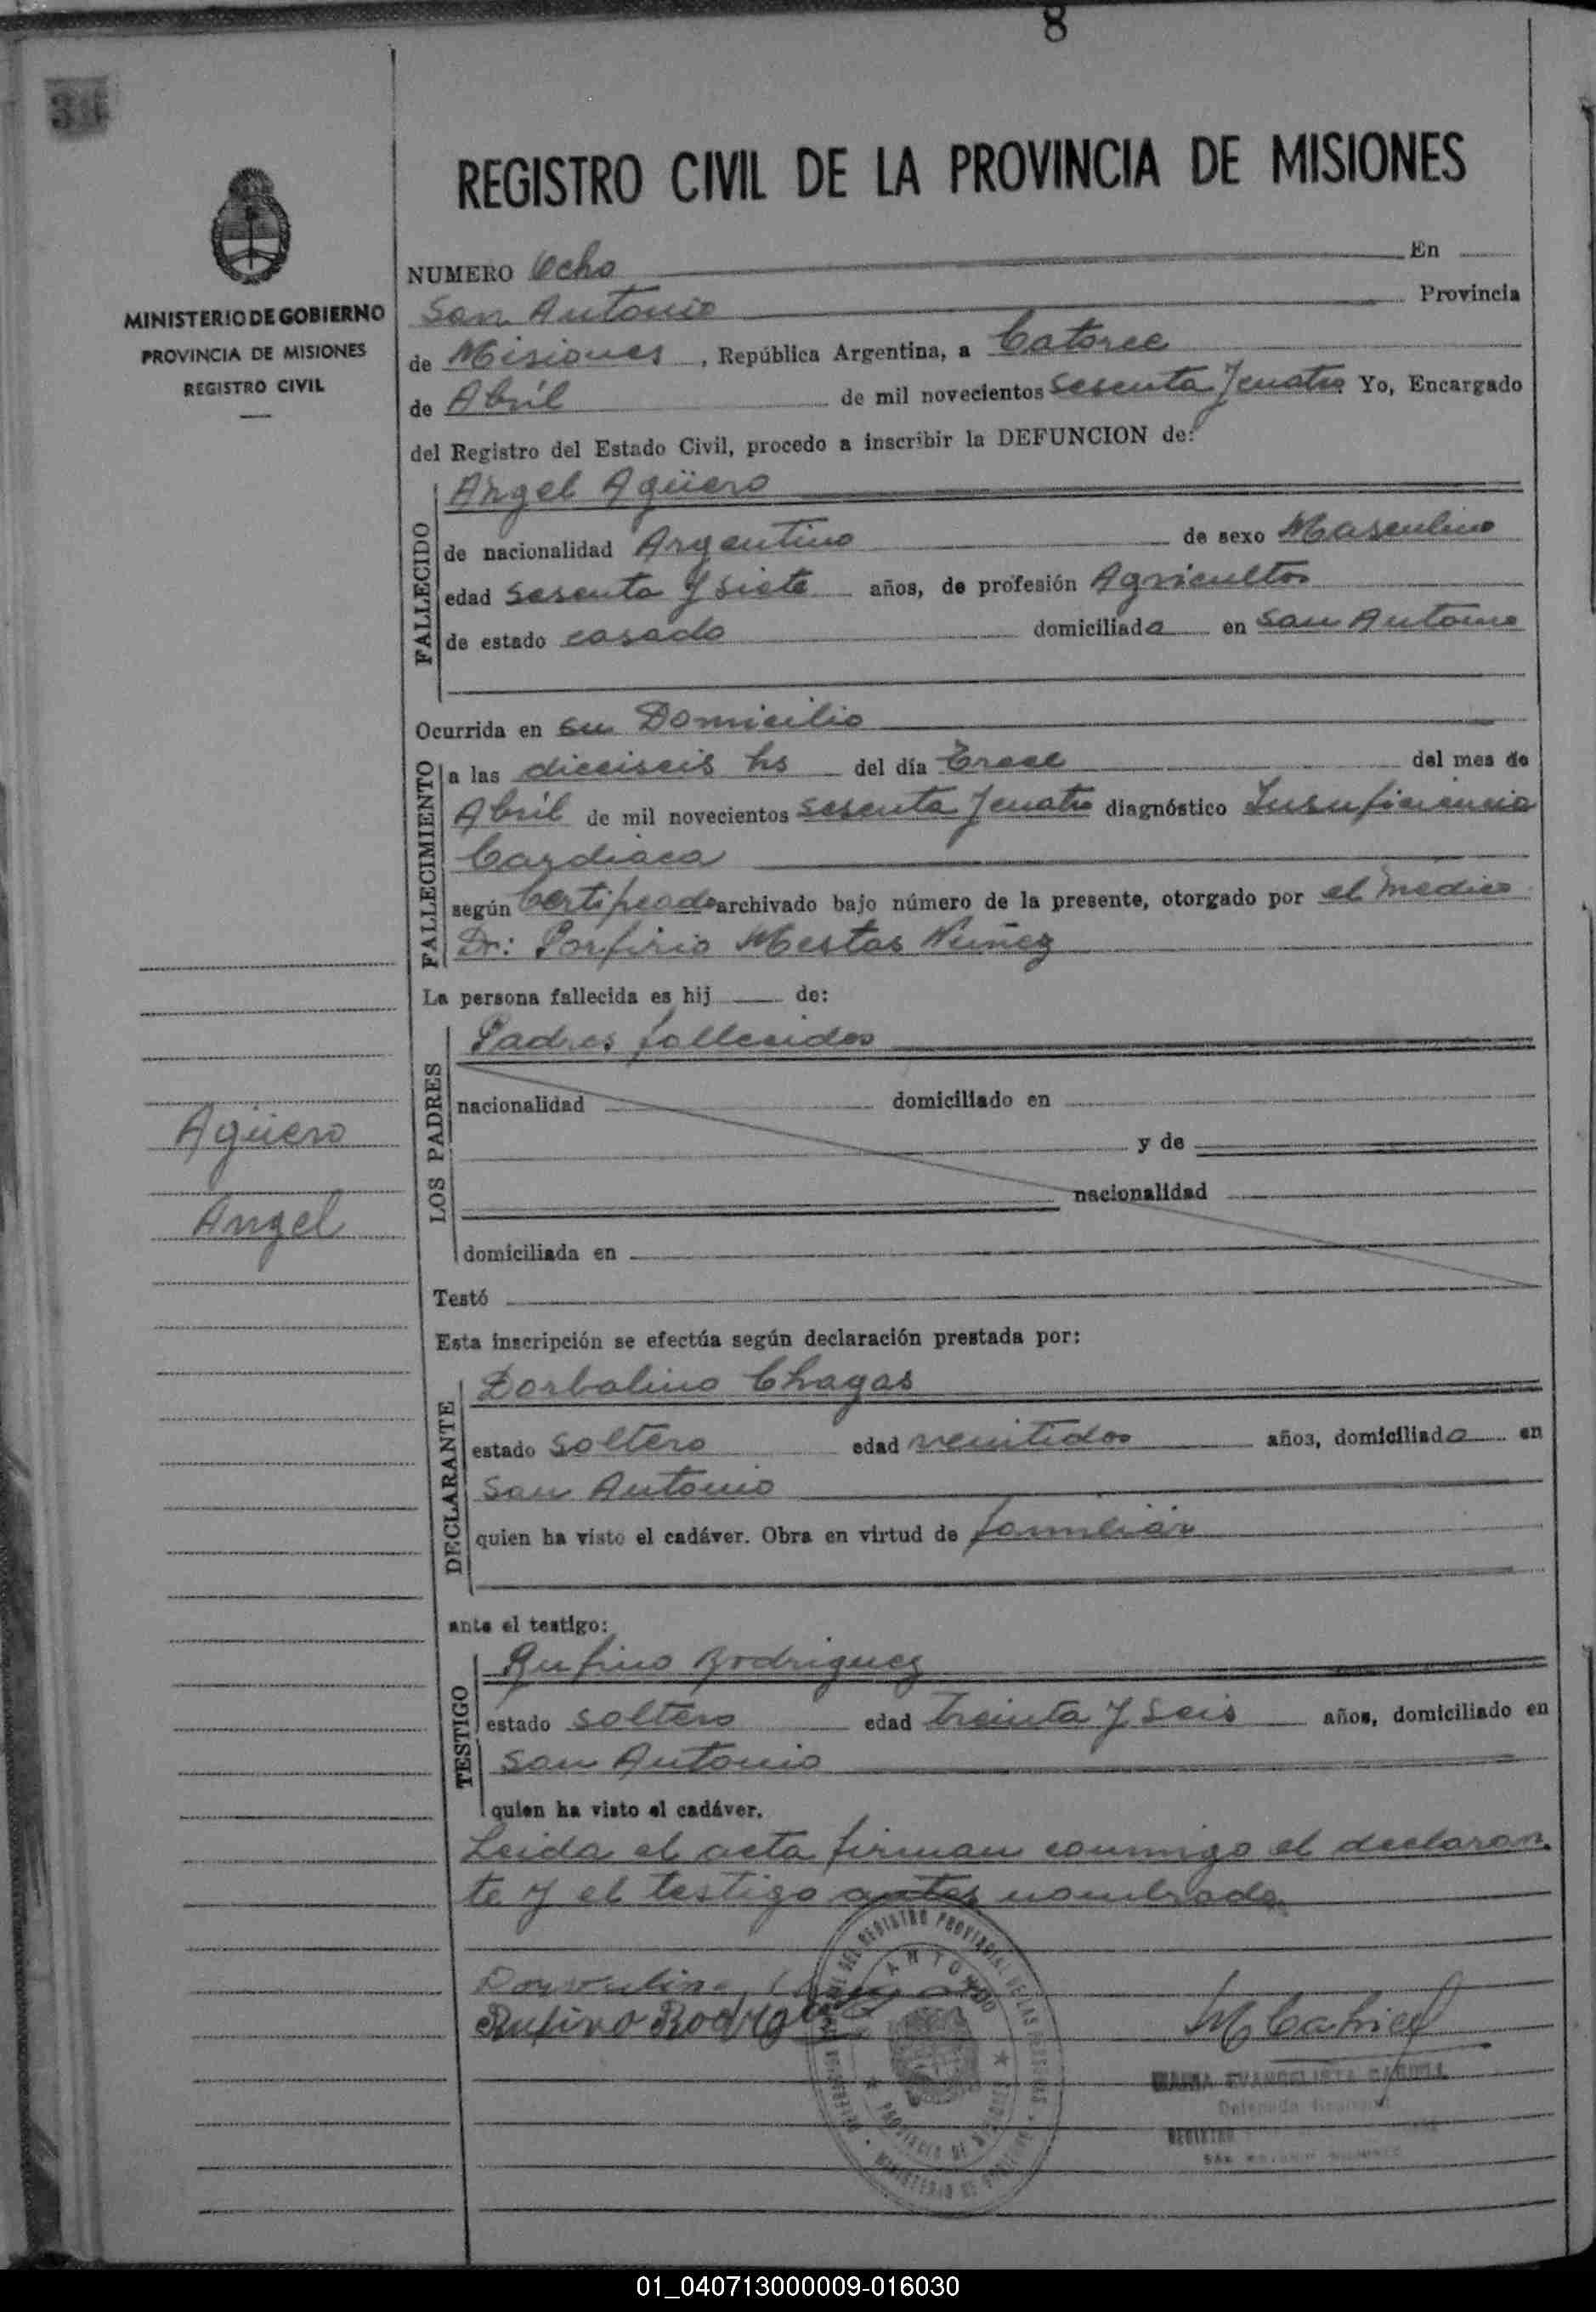 8
MINISTERIO DE GOBIERNO
PROVINCIA DE MISIONES
REGISTRO CIVIL
REGISTRO CIVIL DE LA PROVINCIA DE MISIONES
NUMERO Ocho En
San Antonio Provincia
de Misiones, República Argentina, a Catorce
de Abríl de mil novecientos sesenta y cuatro Yo, Encargado
del Registro del Estado Civil, procedo a inscribir la DEFUNCION de:
FALLECIDO
Angel Agüero
de nacionalidad Argentino de sexo Masculino
edad sesenta y siete años, de profesión Agricultor
de estado casado domiciliado en San Antonio
Ocurrida en su Domicilio
FALLECIMIENTO
a las dieciseis hs del día trece del mes de
Abríl de mil novecientos sesenta y cuatro diagnóstico Insuficiencia
Cardiaca
según Certificado archivado bajo número de la presente, otorgado por el medico
Dr: Porfirio Mestas Nuñez
La persona fallecida es hij de:
LOS PADRES
Padres fallecidos
nacionalidad domiciliado en
y de
nacionalidad
domiciliada en
Agüero
Angel
Testó
Esta inscripción se efectúa según declaración prestada por:
DECLARANTE
Dorbalino Chagas
estado soltero edad venitidos años, domiciliado en
San Antonio
quien ha visto el cadáver. Obra en virtud de familiár
ante el testigo:
TESTIGO
Rufino Rodriguez
estado soltero edad treinta y seis años, domiciliado en
San Antonio
quien ha visto el cadáver.
Leida el acta firman conmigo el declaran
te y el testigo antes nombrado
Rufino Rodrigue
M Cabriel
REGISTRO
01_040713000009-016030